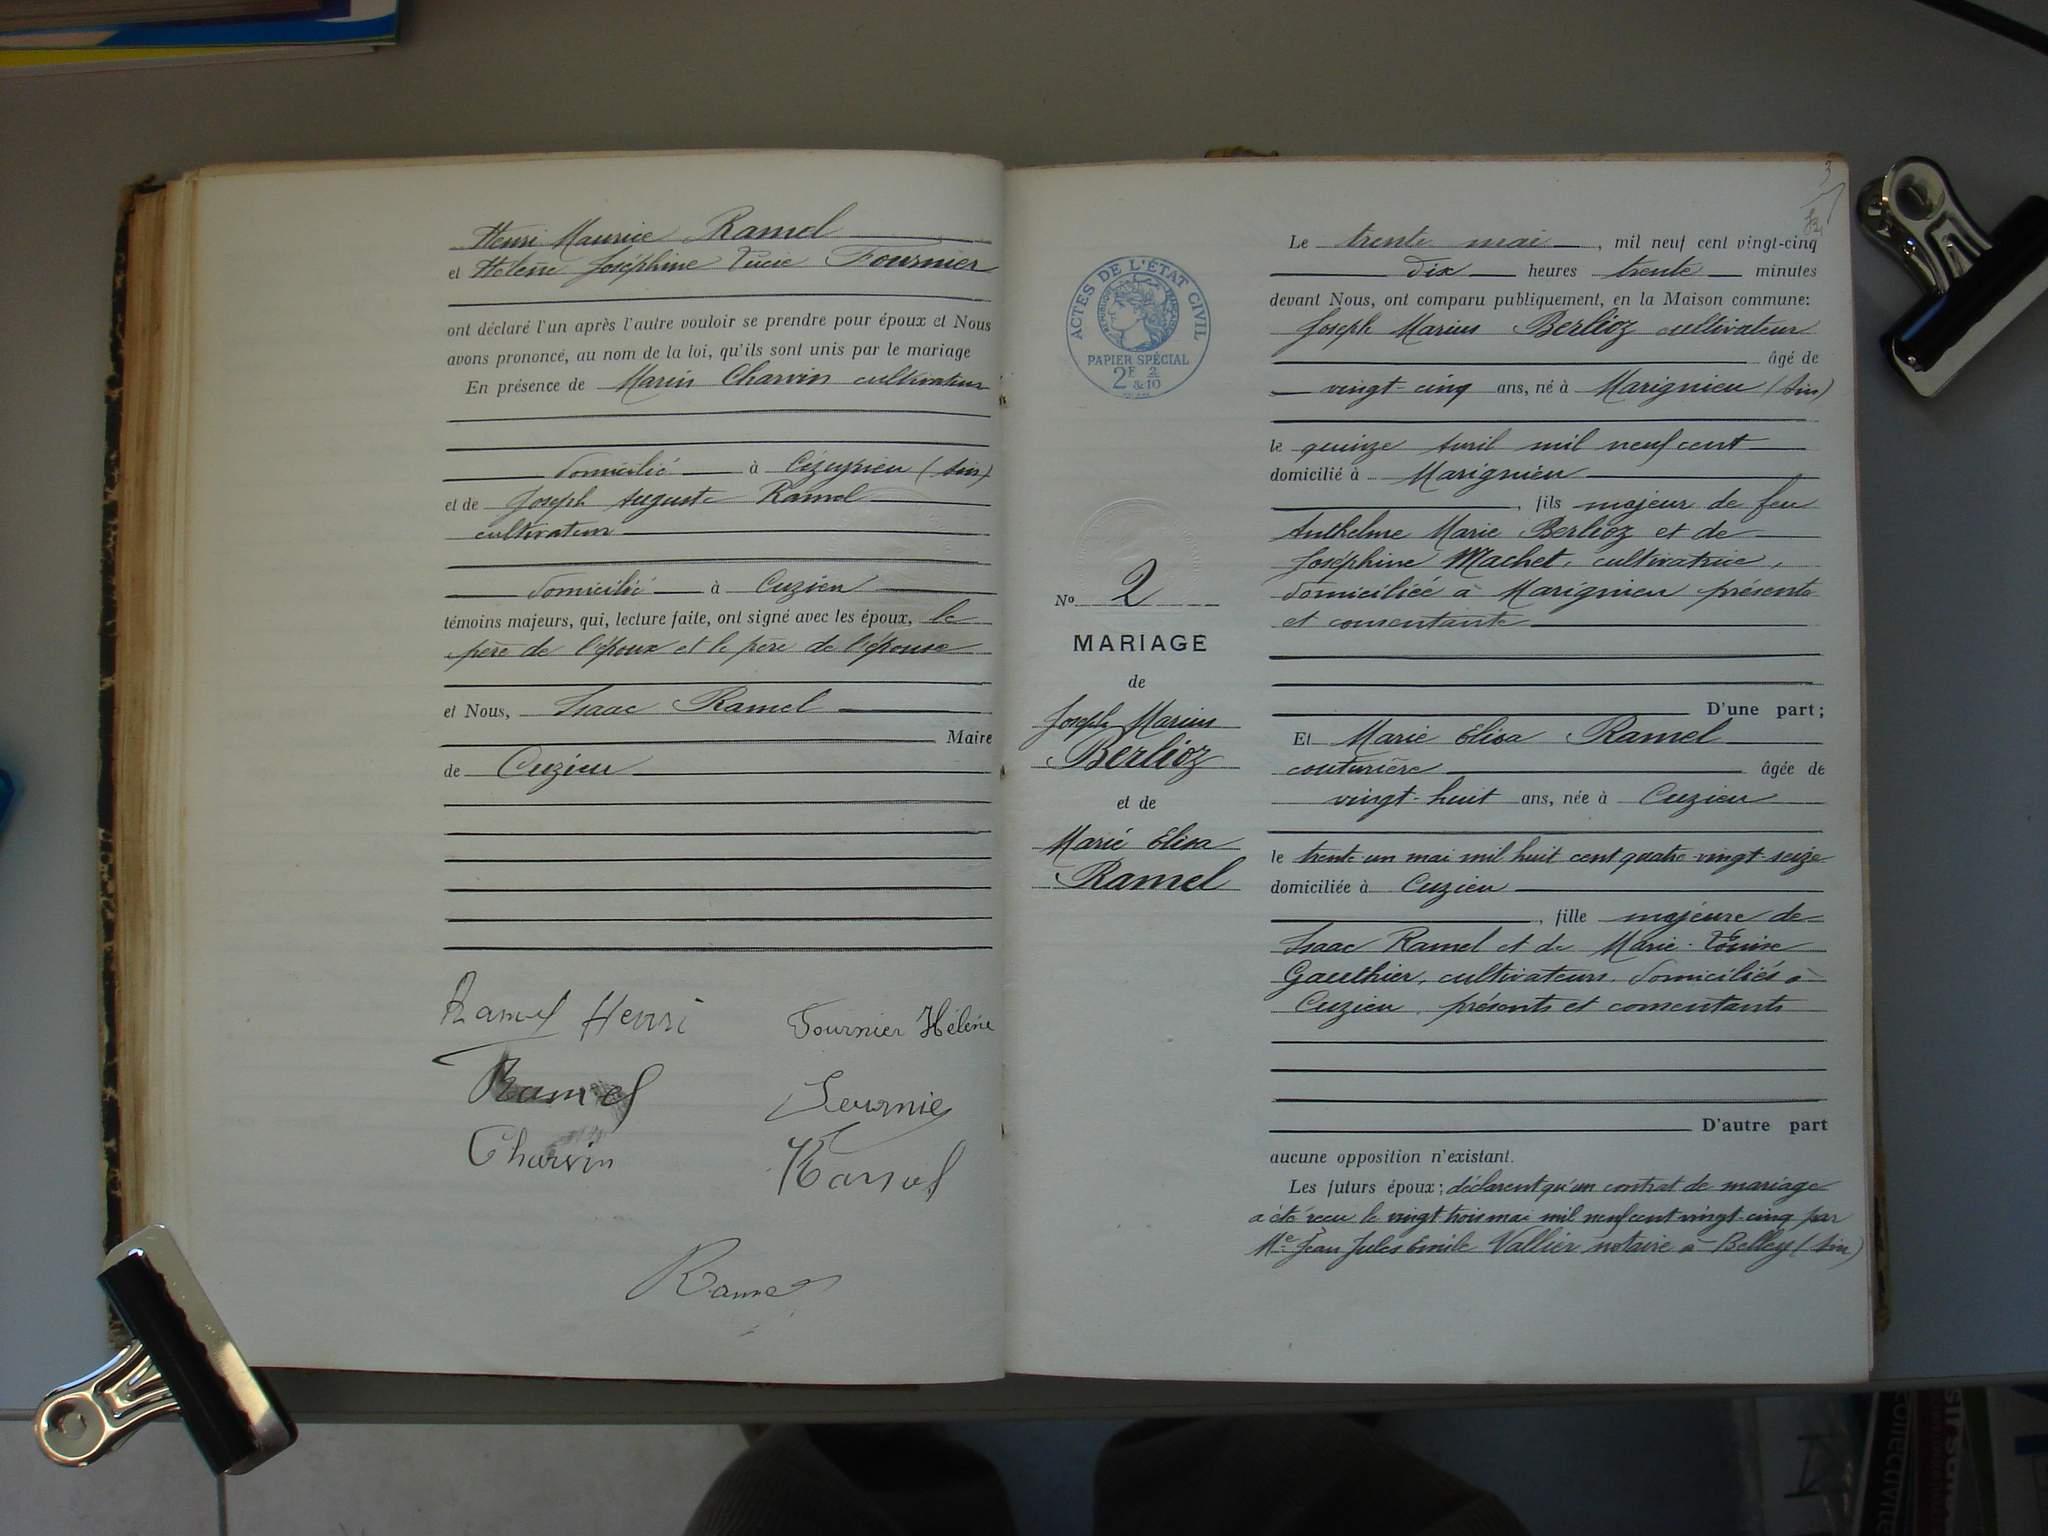 Henri Maurice Ramel
et Hélène Joséphine Lucie Fournier
ont déclaré l'un après l'autre vouloir se prendre pour époux et Nous
avons prononcé, au nom de la loi, qu'ils sont unis par le mariage
En présence de Marin Charvin cultivateur
domicilié à Cézeyrieu (Ain)
et de Joseph Auguste Ramel
cultivateur
domicilié à Cuzieu
témoins majeurs, qui, lecture faite, ont signé avec les époux, le
père de l'époux et le père de l'épouse
et Nous, Isaac Ramel
Maire
de Cuzieu
Ramel Henri
Fournier Hélène
Ramel
Fournier
Charvin
Ramel
Ramel
3
ACTES DE L'ÉTAT CIVIL
RÉPUBLIQUE FRANÇAISE
PAPIER SPÉCIAL
2F 2
&10
No 2
MARIAGE
de
Joseph Marius
Berlioz
et de
Marie Elisa
Ramel
Le trente mai, mil neuf cent vingt-cinq
dix heures trente minutes
devant Nous, ont comparu publiquement, en la Maison commune:
Joseph Marius Berlioz cultivateur
âgé de
vingt-cinq ans, né à Marignieu (Ain)
le quinze Avril mil neuf cent
domicilié à Marignieu
, fils majeur de feu
Anthelme Marie Berlioz et de
Joséphine Machet, cultivatrice,
domiciliée à Marignieu présente
et consentante
D'une part;
Et Marie Elisa Ramel
couturière âgée de
vingt-huit ans, née à Cuzieu
le trente un mai mil huit cent quatre-vingt-seize
domiciliée à Cuzieu
, fille majeure de
Isaac Ramel et de Marie-Louise
Gauthier, cultivateurs, domiciliés à
Cuzieu, présents et consentants
D'autre part
aucune opposition n'existant.
Les futurs époux; déclarent qu'un contrat de mariage
a été reçu le vingt trois mai mil neuf cent vingt-cinq par
Me Jean Jules Emile Vallier notaire à Belley (Ain)